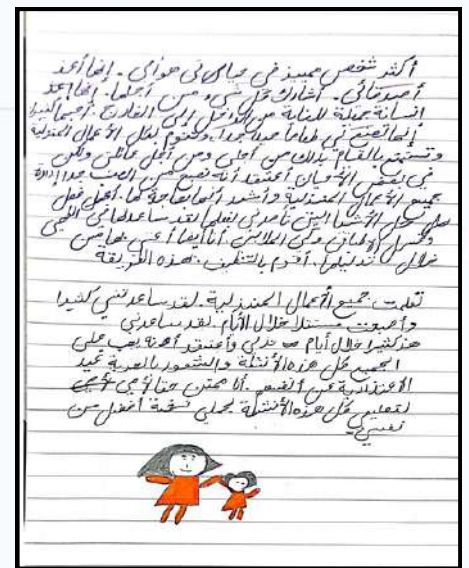 أكثر شخص مميز في حياتي هي أمي. إنها أعز
أصدقائي. أشارك كل شيء من أجلها. إنها أعز
انسانة جميلة للغاية من الداخل إلى الخارج. أحبها كثيرا
إنها تصنع لي طعاما جيدا جدا. وتقوم بكل الأعمال المنزلية
وتستمتع بالقيام بذلك من أجلي ومن أجل عائلتي ولكن
في بعض الأحيان أعتقد أنه يصبح من الصعب جدا إدارة
جميع الأعمال المنزلية وأشعر أنها بحاجة لها. أفعل
كل الأشيا التي تأمرني لفعلها لقد ساعدتها في
وغسل الأطباق وكي الملابس أنا أيضا أعتني بها من
خلال تدليلها. أقوم بالتنظيف. بهذه الطريقة
تعلمت جميع الأعمال المنزلية. لقد ساعدتني كثيرا
وأصبحت مستقلا خلال الأيام. لقد ساعدني
هذ كثيرا خلال أيام دربي وأعتقد أهنه يجب على
الجميع كل هذه الأنشطة والشعور بالحرية غير
الاعتذارية عن أنفسهم. أنا ممتن حقا لأمي
لتعليمي كل هذه الأنشطة لجعلي نسخة أفضل من
نفسي.